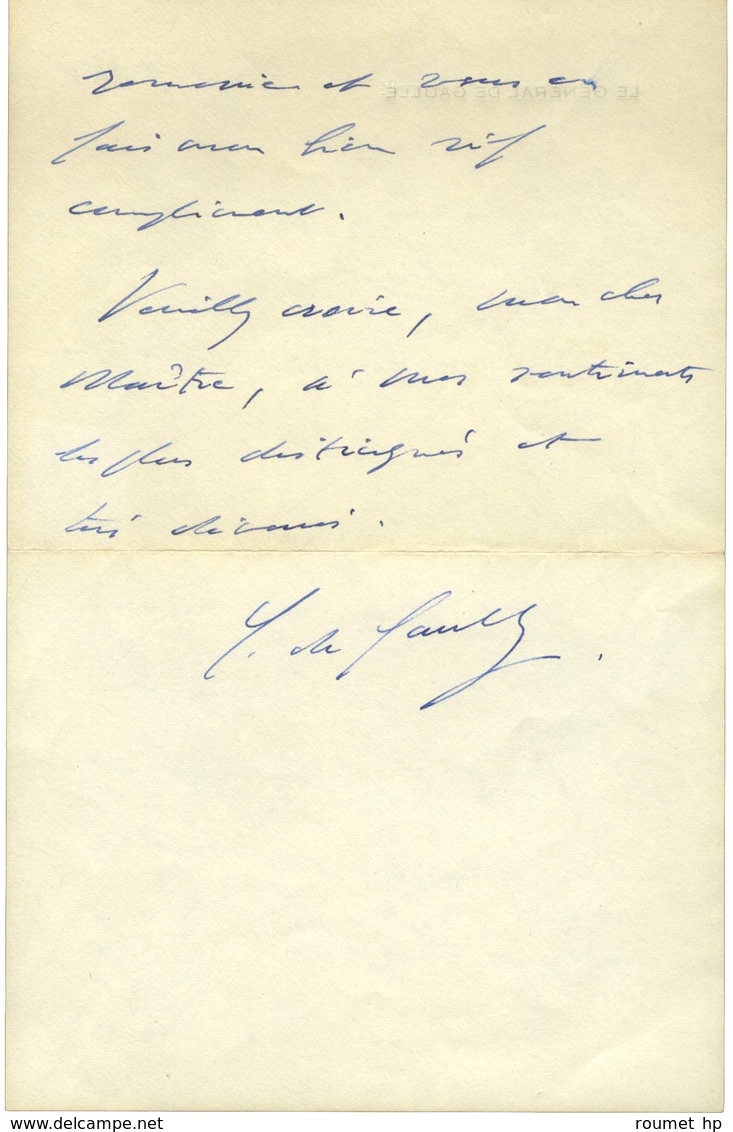 remercie et vous en
LE GÉNÉRAL DE GAULLE
fais mon bien vif
compliment.
Veuillez croire, mon cher
Maître, à mes sentiments
les plus distingués et
très dévoués.
C. de Gaulle.
www.delcampe.net
roumet hp